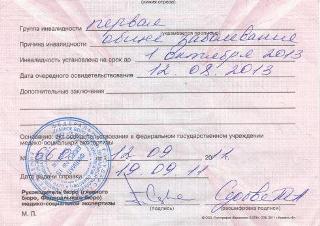 (линия отреза)
Группа инвалидности первая
(указывается прописью)
Причина инвалидности общее заболевание
Инвалидность установлена на срок до 1 октября 2013
Дата очередного освидетельствования 12.08.2013
Дополнительные заключения
Основание: акт освидетельствования в федеральном государственном учреждении
медико-социальной экспертизы
12.09 2011
Дата выдачи справки 19.09.11
Руководитель бюро (главного
бюро, Федерального бюро)
медико-социальной экспертизы
(подпись) (расшифровка подписи)
М. П.